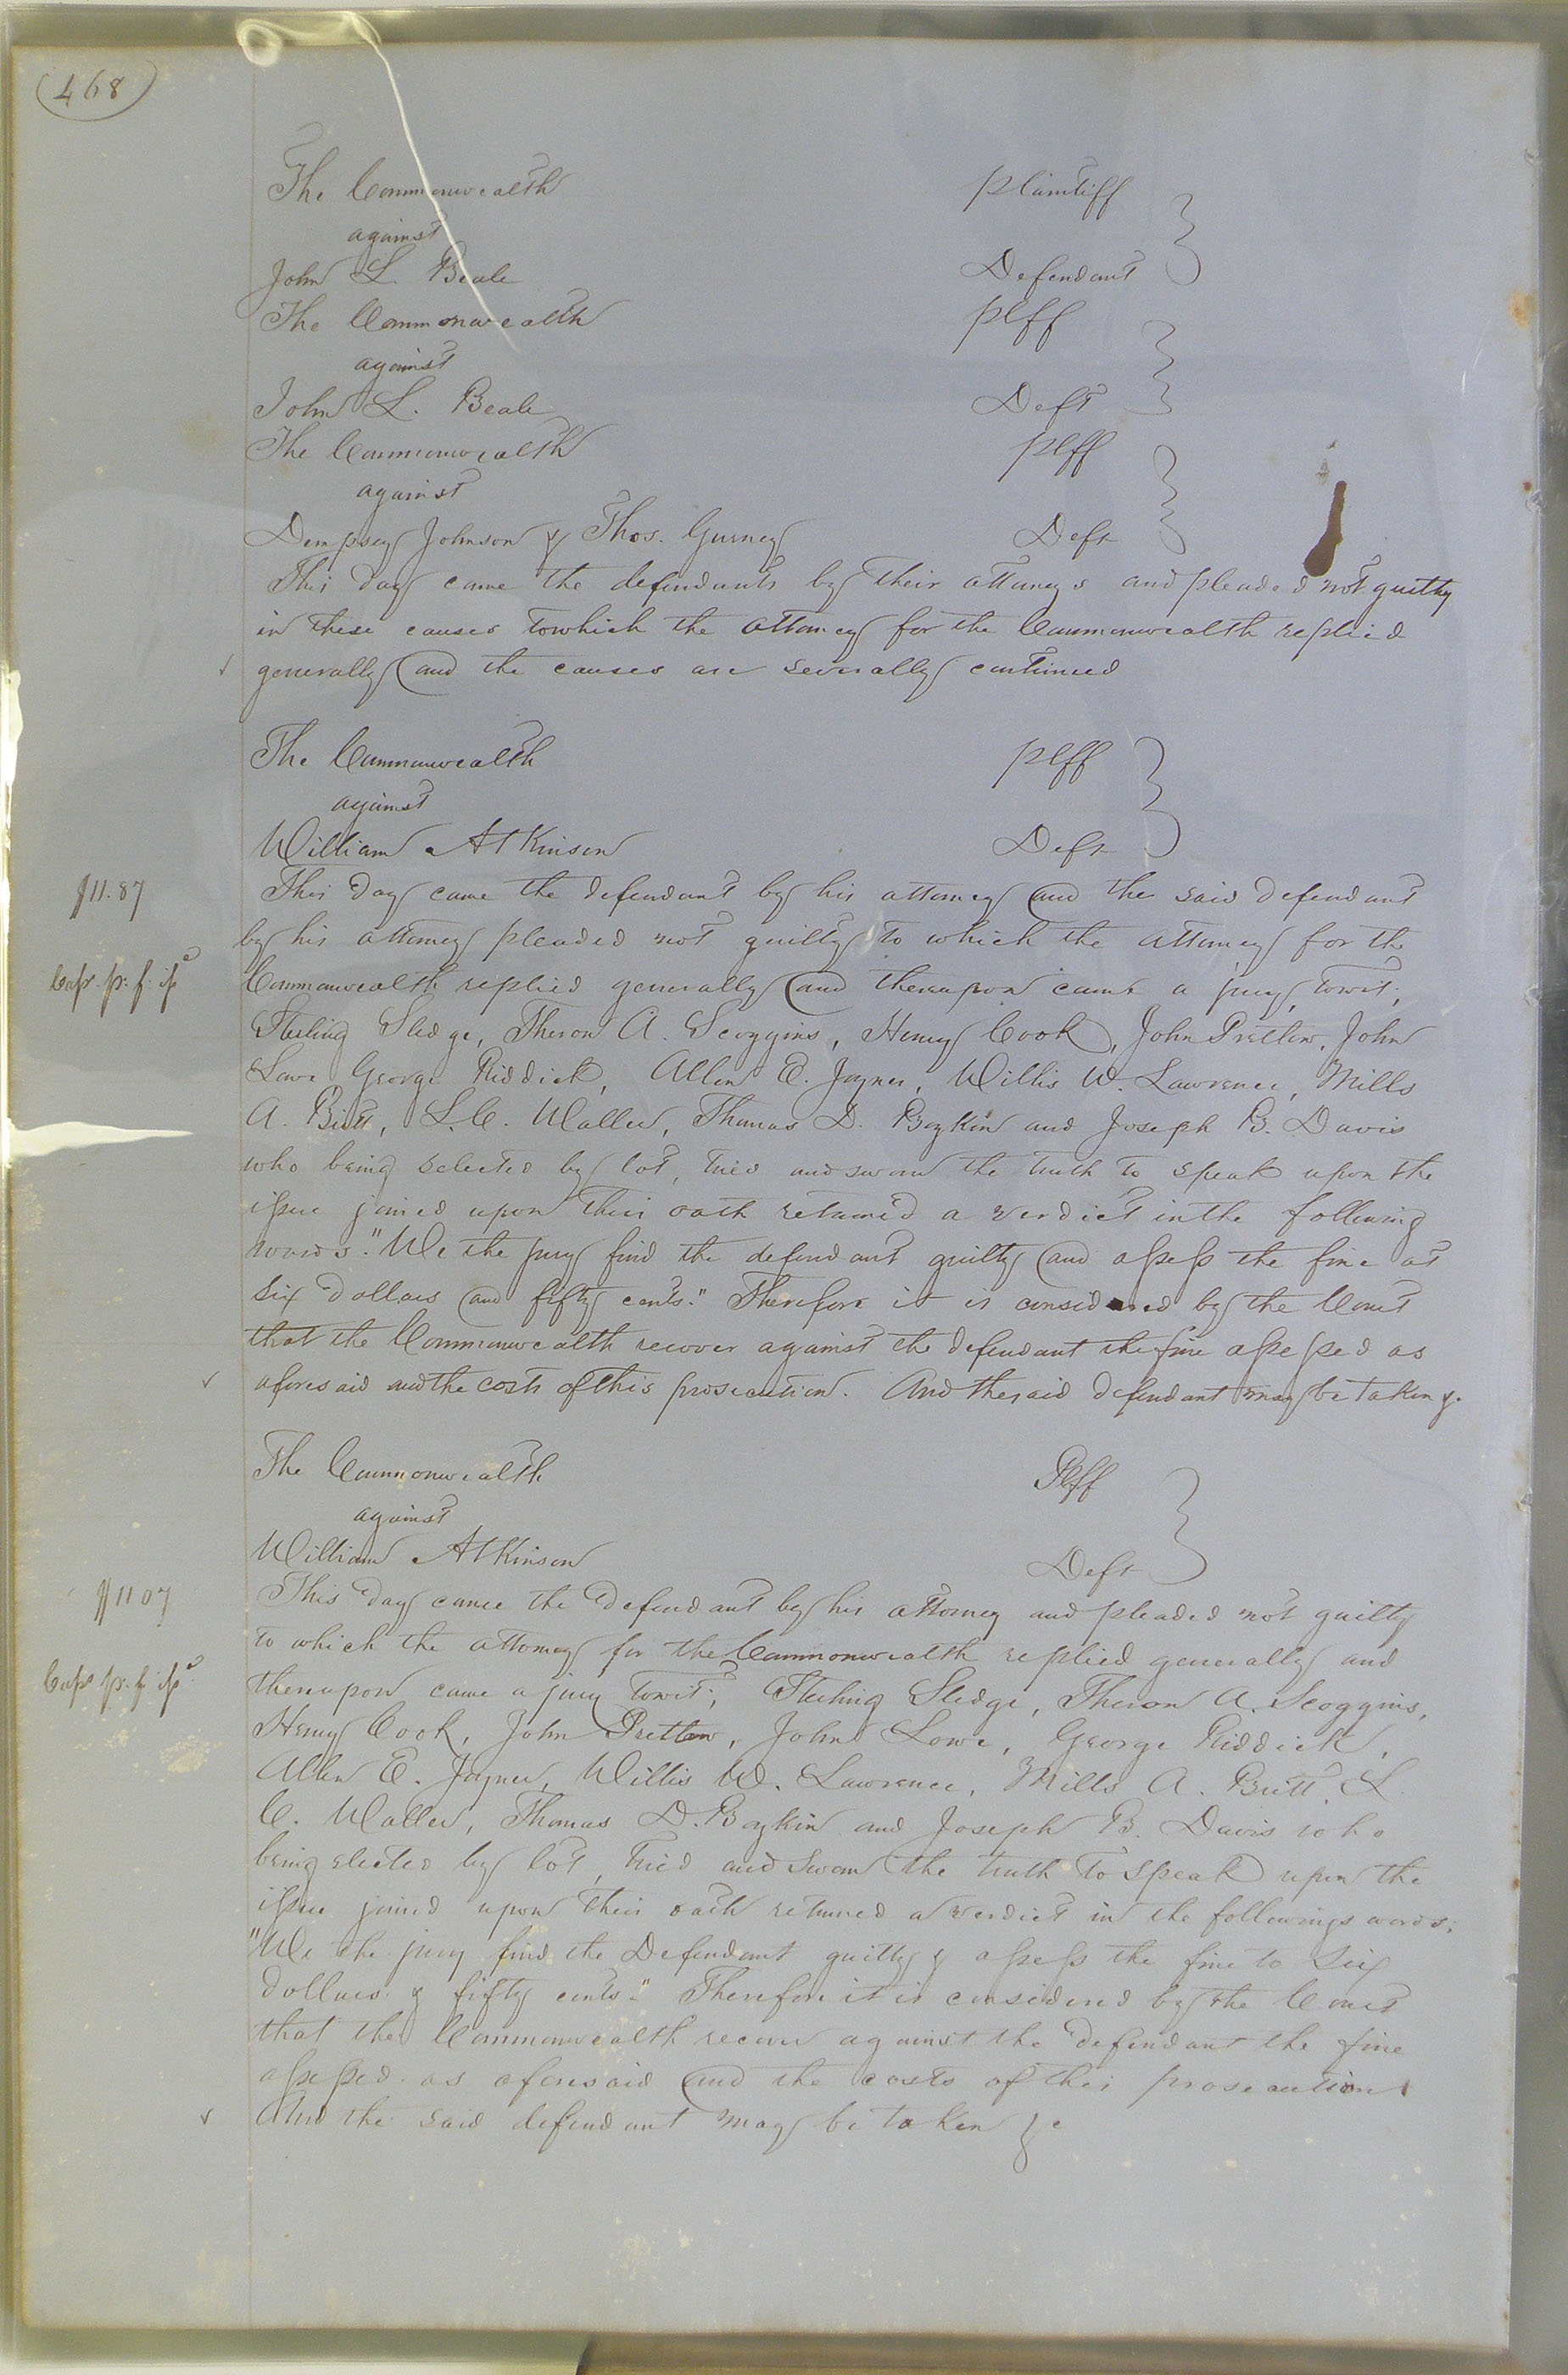 468
The Commonwealth Plaintiff
against
John L. Beale Defendant
The Commonwealth Plff
against
John L. Beale Deft
The Commonwealth Plff
against
Dempsey Johnson & Thos. Gurney Deft
This day came the defendants by their attorneys and pleaded not guilty
in these causes to which the attorney for the Commonwealth replied
generally and the causes are severally continued
The Commonwealth Plff
against
William Atkinson Deft
This day came the defendant by his attorney and the said defendant
$11.87
by his attorney pleaded not guilty to which the attorney for the
Commonwealth replied generally and thereupon came a jury, towit;
Sterling Sledge, Theron A. Scoggins, Henry Cook, John Pretlow, John
Lowe George Riddick, Allen E. Joyner, Willis W. Lawrence, Mills
A. Britt, L. C. Waller, Thomas D. Boykin and Joseph B. Davis
who being selected by lot, tried and sworn the truth to speak upon the
issue joined upon their oath returned a verdict in the following
words. "We the jury find the defendant guilty and assess the fine at
six dollars and fifty cents." Therefore it is considered by the Court
that the Commonwealth recover against the defendant the fine assessed as
aforesaid and the costs of this prosecution. And the said defendant may be taken &.
The Commonwealth Plff
against
William Atkinson Deft
This day came the defendant by his attorney and pleaded not guilty
$11 07
to which the attorney for the Commonwealth replied generally and
thereupon came a jury towit; Sterling Sledge, Theron A. Scoggins,
Henry Cook, John Pretlow, John Lowe, George Riddick,
Allen E. Joyner, Willis W. Lawrence, Mills A. Britt, L.
C. Waller, Thomas D. Boykin and Joseph B. Davis who
being elected by lot, tried and sworn the truth to speak upon the
issue joined upon their oath returned a verdict in the followings words;
"We the jury find the Defendant guilty & assess the fine to six
dollars & fifty cents." Therefore it is considered by the Court
that the Commonwealth recover against the defendant the fine
assessed as aforesaid and the costs of this prosecution
And the said defendant may be taken &c